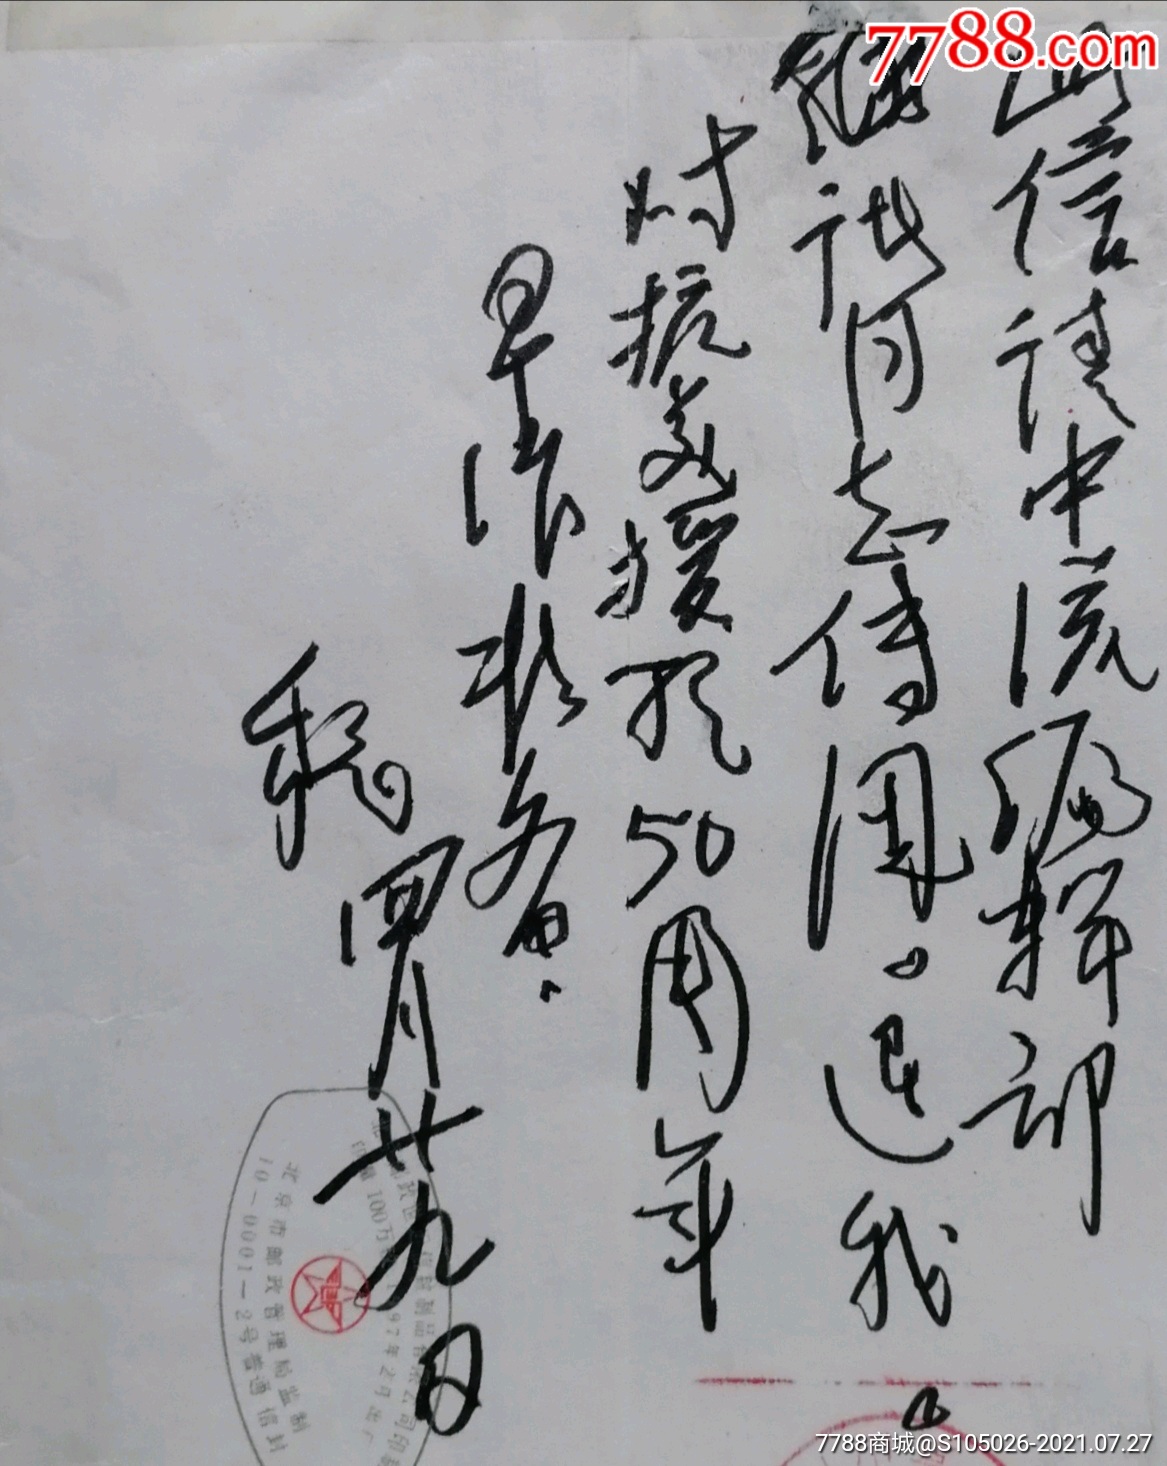 7788.com
此信请中流编辑部
诸同志传阅。退我。
对抗美援朝50周年
早作准备.
魏
四月廿九日
北京市邮政管理局监制
10-0001-2号普通信封
7788商城@S105026-2021.07.27